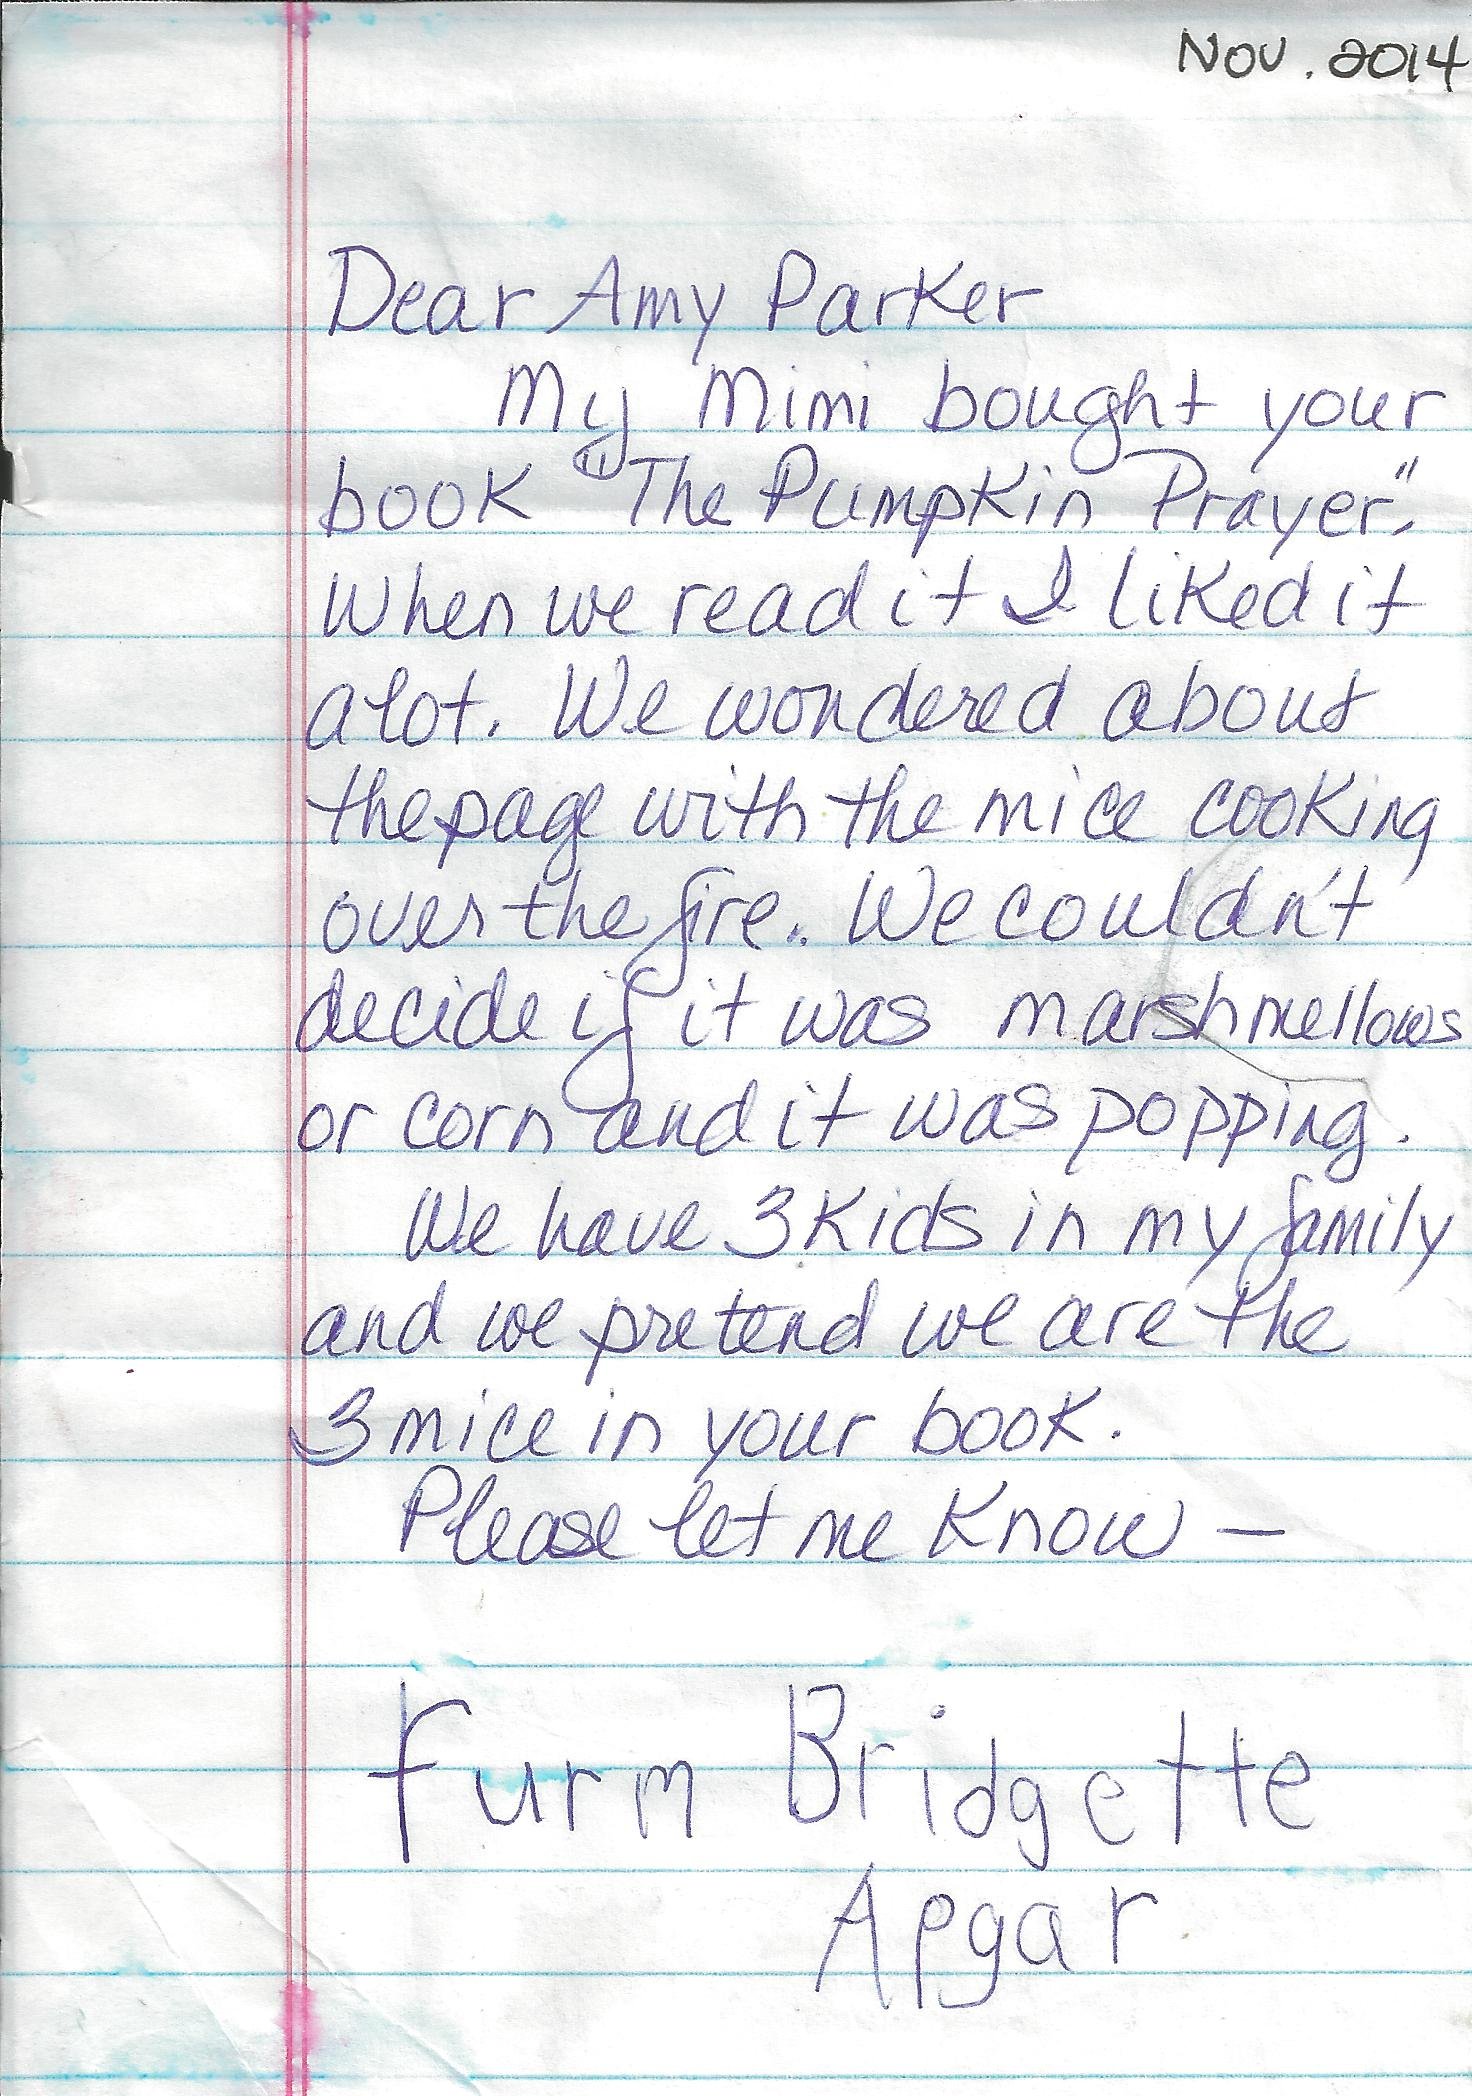 Nov. 2014
Dear Amy Parker
My Mimi bought your
book "The Pumpkin Prayer."
When we read it I liked it
alot. We wondered about
the page with the mice cooking
over the fire. We couldn't
decide if it was marshmellows
or corn and it was popping.
We have 3 kids in my family
and we pretend we are the
3 mice in your book.
Please let me know —
Furm Bridgette
Apgar